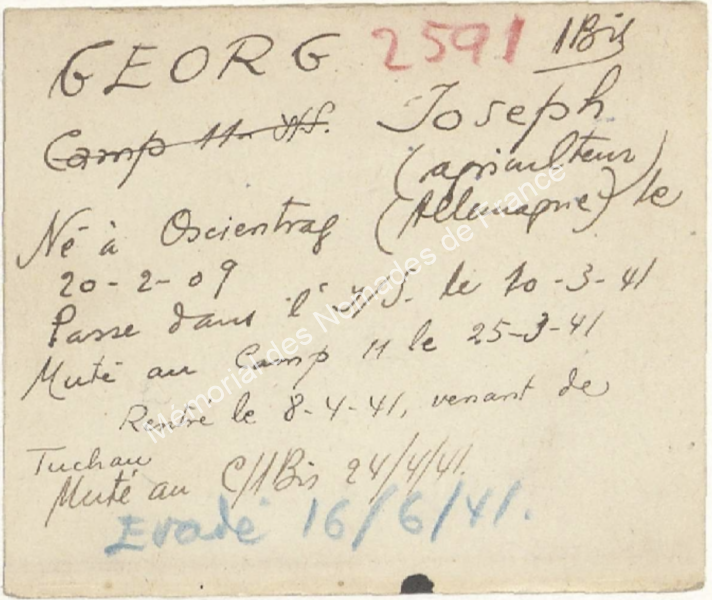 GEORG 2591 1Bis
Camp 11 Joseph
(agriculteur)
Né à Oscientrag (Allemagne) le
20-2-09
Passe dans l' le 10-3-41
Muté au Camp 11 le 25-3-41
Rentré le 8-4-41, venant de
Tuchan
Muté au C/1Bis 24/4/41.
Evadé 16/6/41.
Mémorial des Nomades de France